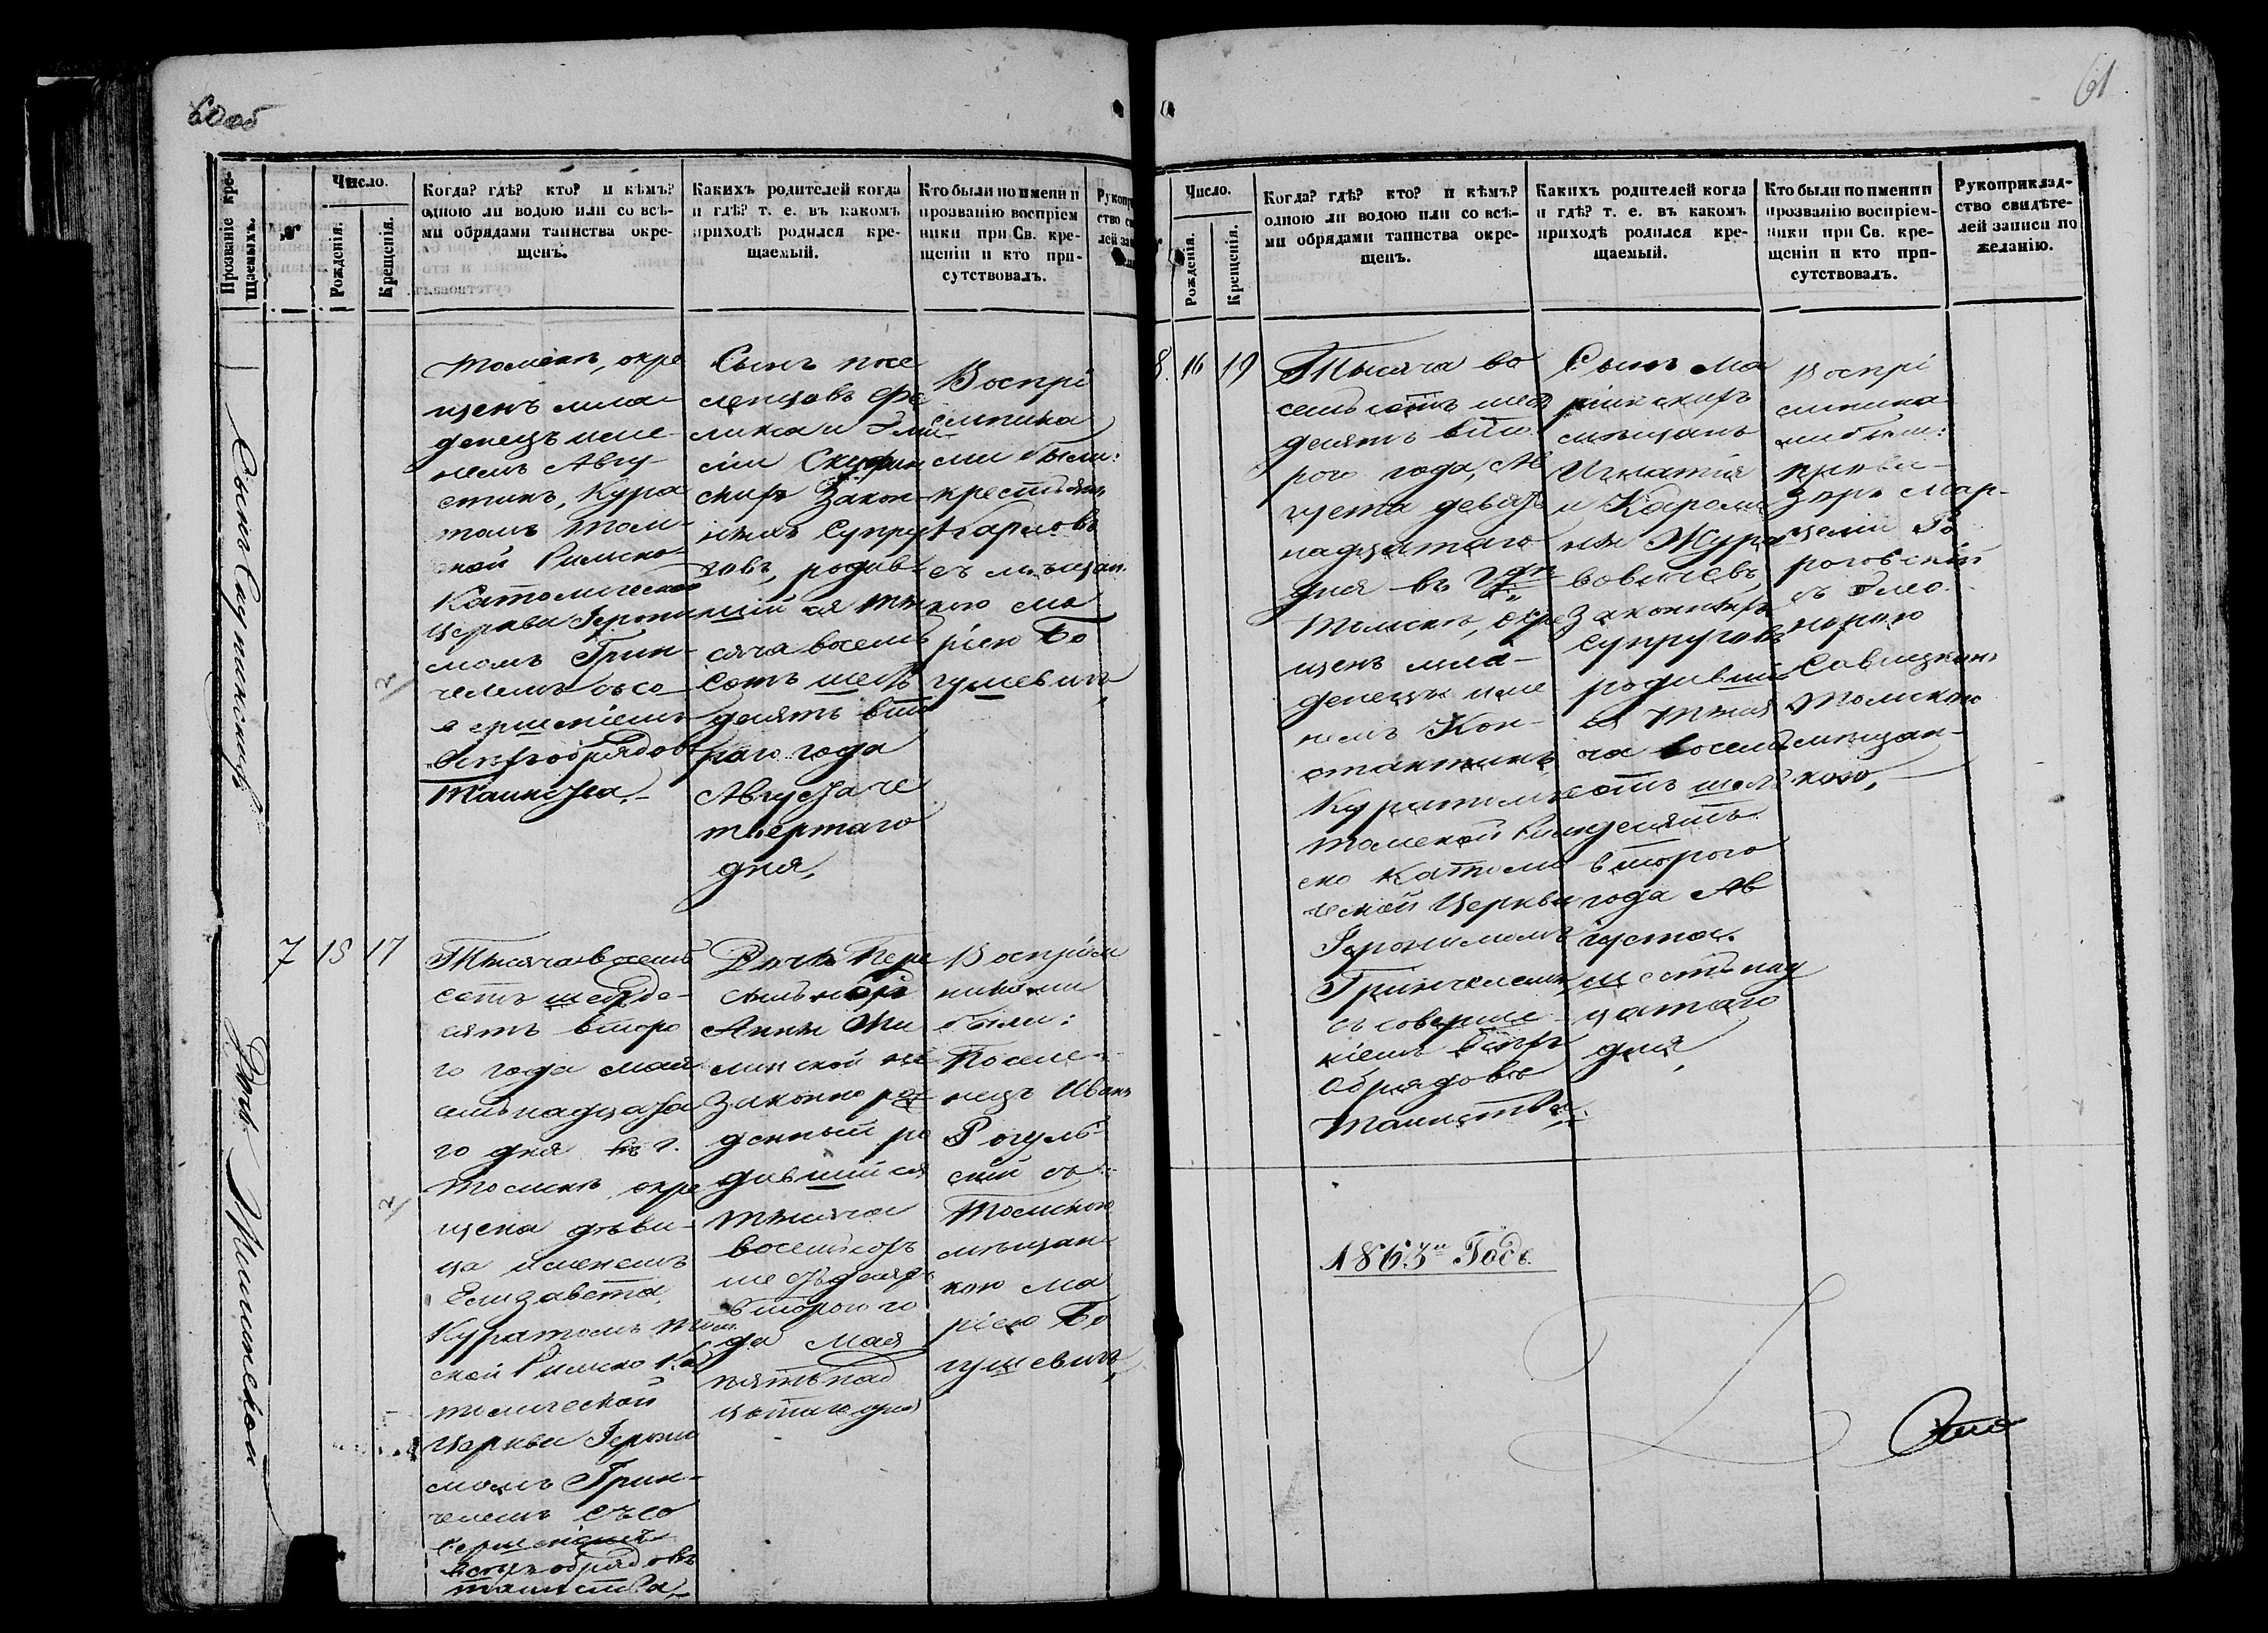 60об
Прозваніе кре-
щаемыхъ.
№
Число.
Рожденія.
Крещенія.
Когда? гдѣ? кто? и кѣмъ?
одною ли водою или со всѣ-
ми обрядами таинства окре-
щенъ.
Какихъ родителей когда
и гдѣ? т. е. въ какомъ
приходѣ родился кре-
щаемый.
Кто были по имени и
прозванію воспріем
ники при Св. кре-
щеніи и кто при-
сутствовалъ.
Сынъ Скупинскихъ
Томскѣ, окре
щенъ мла-
денецъ име-
немъ Авгу-
стинъ, Кура
томъ Том-
ской Римско
Католической
церкви Іерони
момъ Грин-
челемъ съ со
вершеніемъ
всѣхъ обрядовъ
таинства.
Сынъ посе
ленцовъ Фе
ликса и Эми-
ліи
скихъ Закон-
ныхъ Супру
говъ, родив-
шійся ты
сяча восемь
сотъ шесть
десятъ вто
раго года
Августа че
твертаго
дня,
Воспрі
емника
ми были:
крестьян
Карловъ
съ мѣщан
кою Ма
ріею Бо
гушевичъ,
Дочь Жилинской
7 15 17
Тысяча восемь
сотъ шестьде-
сятъ второ
го года мая
семьнадцата
го дня въ г.
Томскѣ окре
щена дѣви-
ца именемъ
Елизавета,
Куратомъ Том
ской Римско Ка
толической
Церкви Іерони
момъ Грин-
челемъ съ со
вершеніемъ
всѣхъ обрядовъ
таинства,
Дочь Пере
сыльной
Анны Жи
линской не
законно рож
денный ро
дившійся
тысяча
восемьсотъ
шестьдесятъ
второго го
да мая
пятьнад
цатаго дня
Воспріем
никами
были:
Поселе-
нецъ Иванъ
Рогуль-
скій съ
Томскою
мѣщан
кою Ма
ріею Бо
гушевичъ,
61
Число.
Рожденія.
Крещенія.
Когда? гдѣ? кто? и кѣмъ?
одною ли водою или со всѣ-
ми обрядами таинства окре-
щенъ.
Какихъ родителей когда
и гдѣ? т. е. въ какомъ
приходѣ родился кре-
щаемый.
Кто были по имени и
прозванію воспріем-
ники при Св. кре-
щеніи и кто при-
сутствовалъ.
Рукоприклад-
ство свидѣте-
лей записи по
желанію.
8. 16 19
Тысяча во
семь сотъ шесть
десятъ вто
рого года, Ав
густа девять
надцатаго
дня въ г.
Томскѣ, окре
щенъ мла-
денецъ име
немъ Кон-
стантинъ,
Куратомъ
Томской Рим
ско Католи
ческой Церкви
Іеронимомъ
Гринчелемъ
съ соверше
ніемъ всѣхъ
обрядовъ
таинства.
Сынъ Ма
ріинскихъ
мѣщанъ
Игнатія
и Кароли
ны Жура
вовичевъ,
Законныхъ
Супруговъ
родивший
ся тыся
ча восемь
сотъ шесть
десятъ
второго
года Ав
густа
шестьнад
цатаго
дня,
Воспрі
емника
ми были:
Мар-
целій Ро
роговскій
съ Элео
норою
Савицкою
Томскою
мѣщан-
кою,
1863й Годъ.